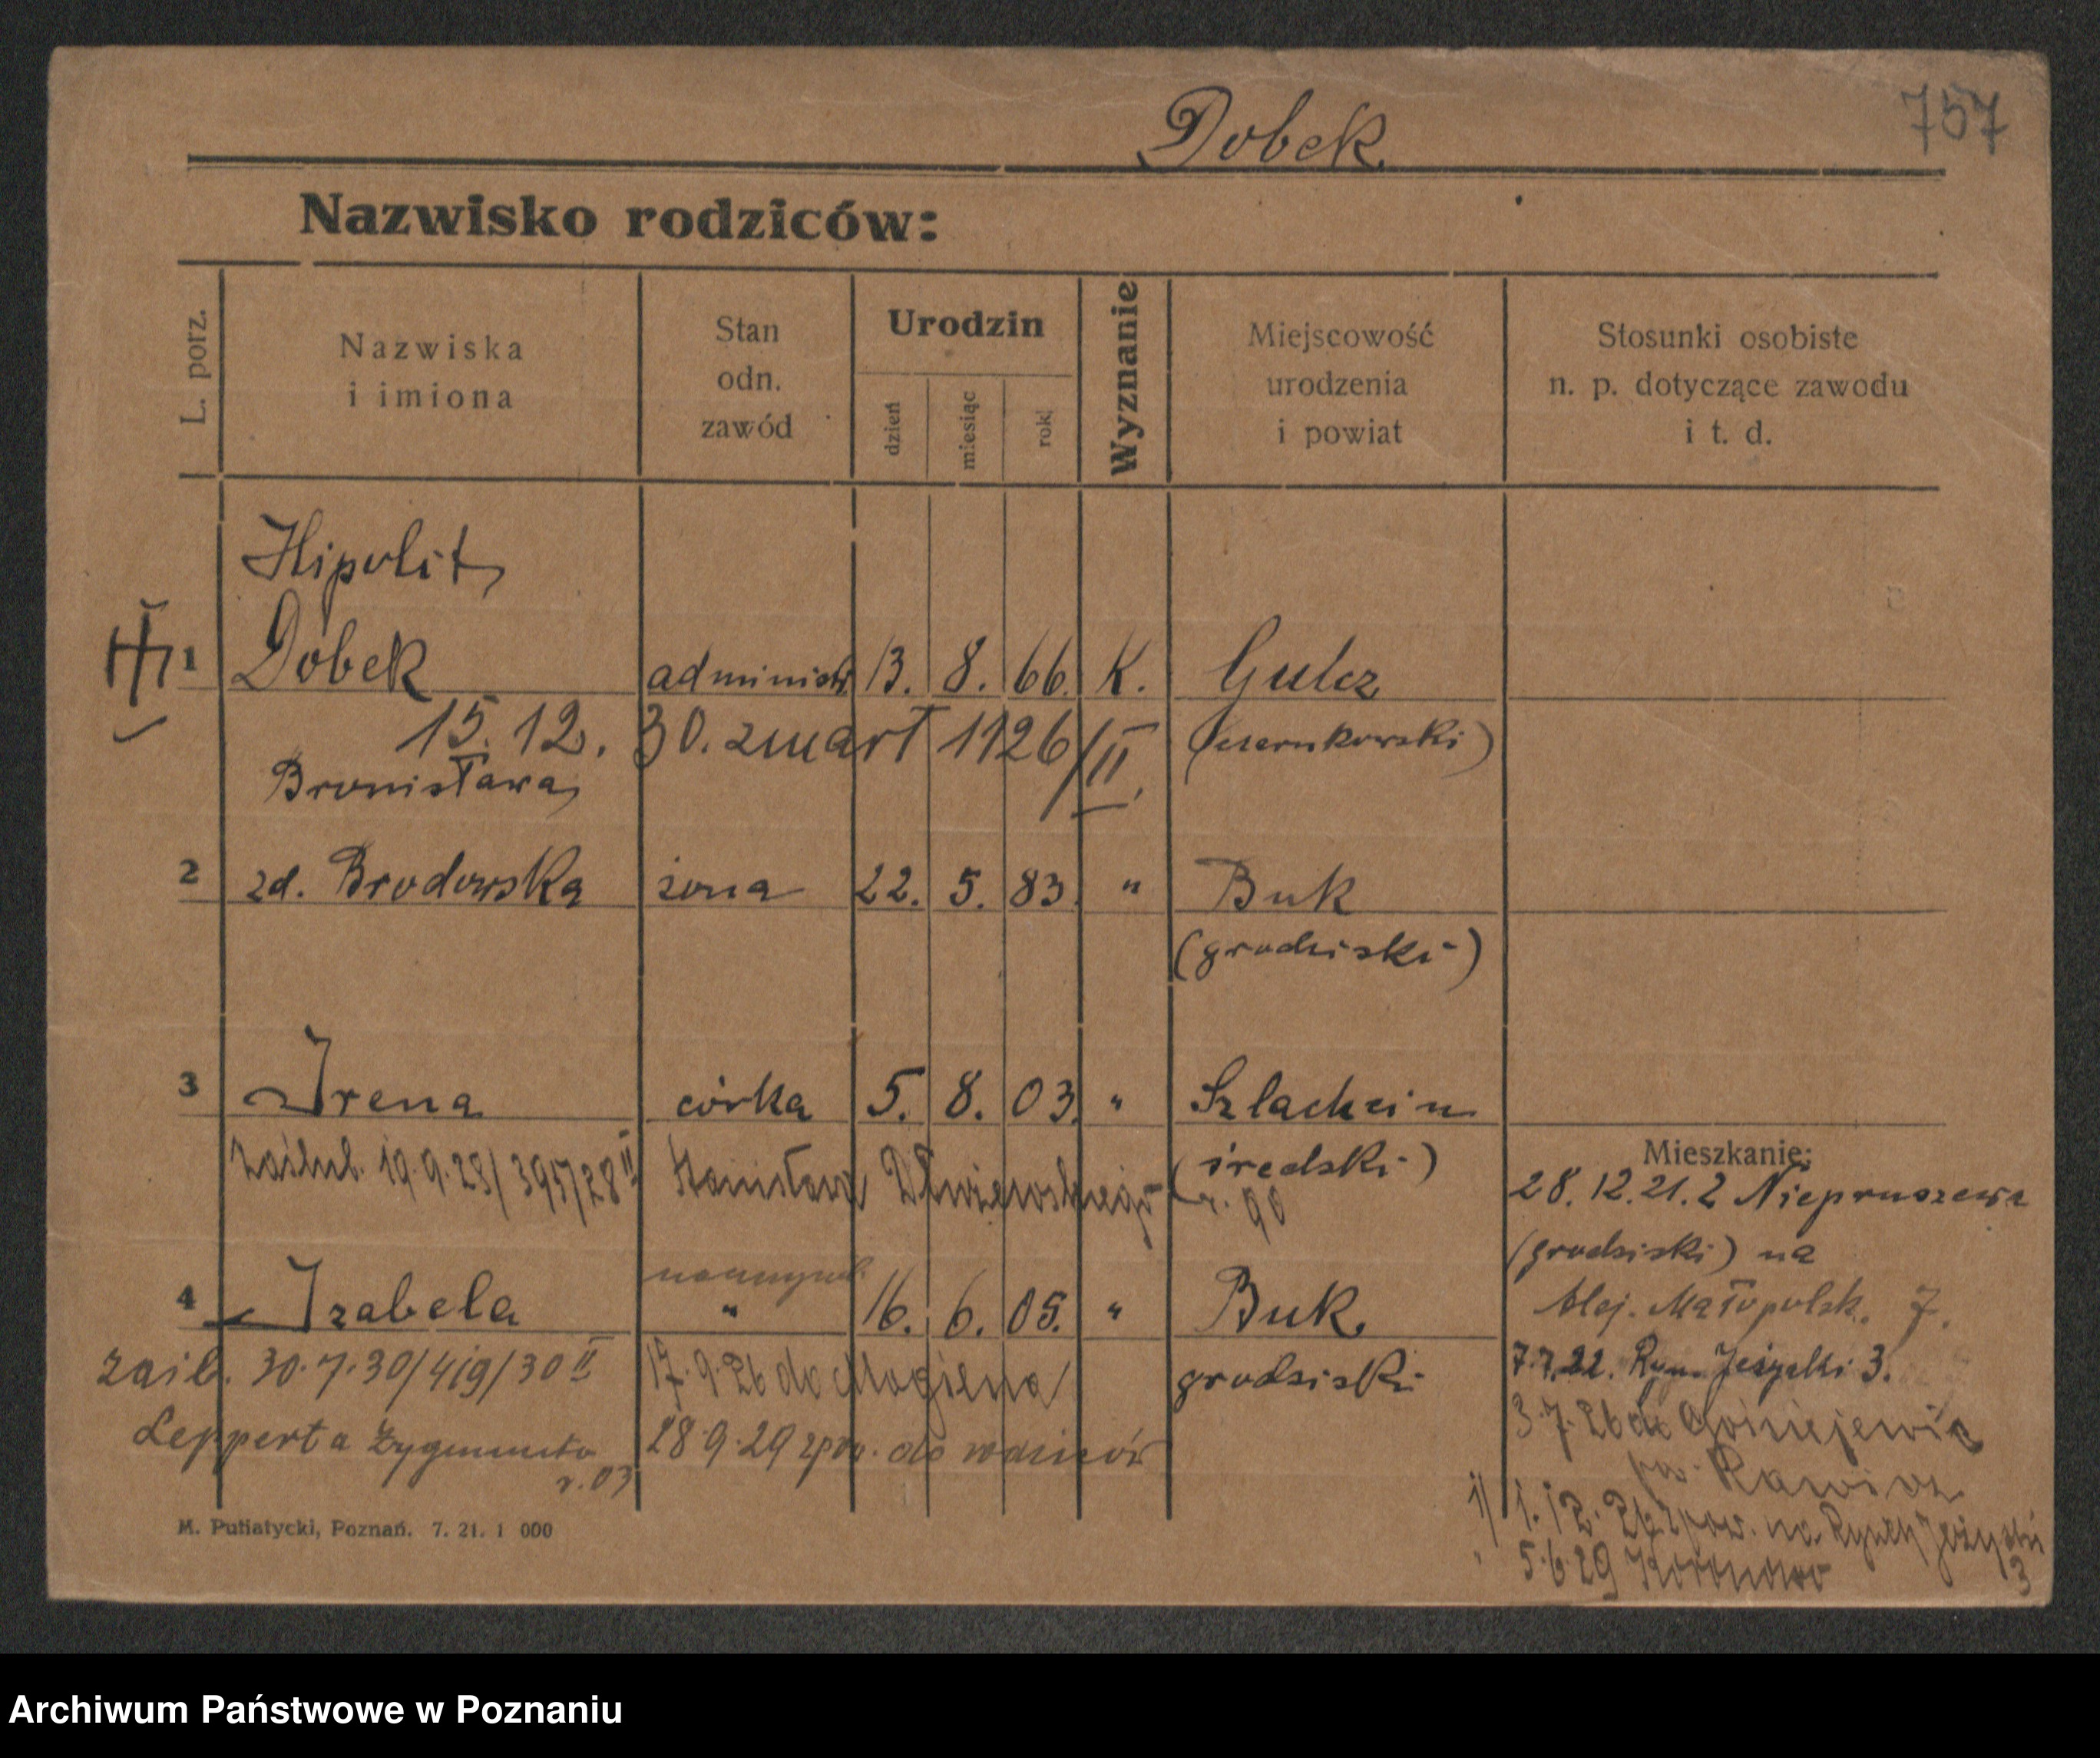 757
Dobek
Nazwisko rodziców:
L. porz.
Nazwiska
i imiona
Stan
odn.
zawód
Urodzin
dzień
miesiąc
rok
Wyznanie
Miejscowość
urodzenia
i powiat
Stosunki osobiste
n. p. dotyczące zawodu
i t. d.
Hipolit
1 Dobek administr. 13. 8. 66. K. Gulcz
15. 12. 30. zmarł 1126/II.
(czarnkowski)
Bronisława
2 zd. Brodowska żona 22. 5. 83. " Buk
(grodziski)
3 Irena córka 5. 8. 03. " Szlachcin
(średzki)
zaślub. 19.9.28/395/28 II Stanisława r. 90
Mieszkanie:
28. 12. 21. z Niepruszewa
(grodziski) na
Alej. Małopolsk. 7.
4 Izabela " 16. 6. 05. " Buk.
grodziski
zaśl. 30.7.30/419/30 II
17.9.26 do Mogilna
7.7.22. Ryn. Jeżycki 3.
Lepperta Zygmunta
r. 03
28.9.29 spow. do rodziców
3.7.26 do
pow. Rawicz
1/ 1.12.26 spow. na Rynek Jeżycki
3
5.6.29 Koronowo
M. Putiatycki, Poznań. 7. 21. 1 000
Archiwum Państwowe w Poznaniu